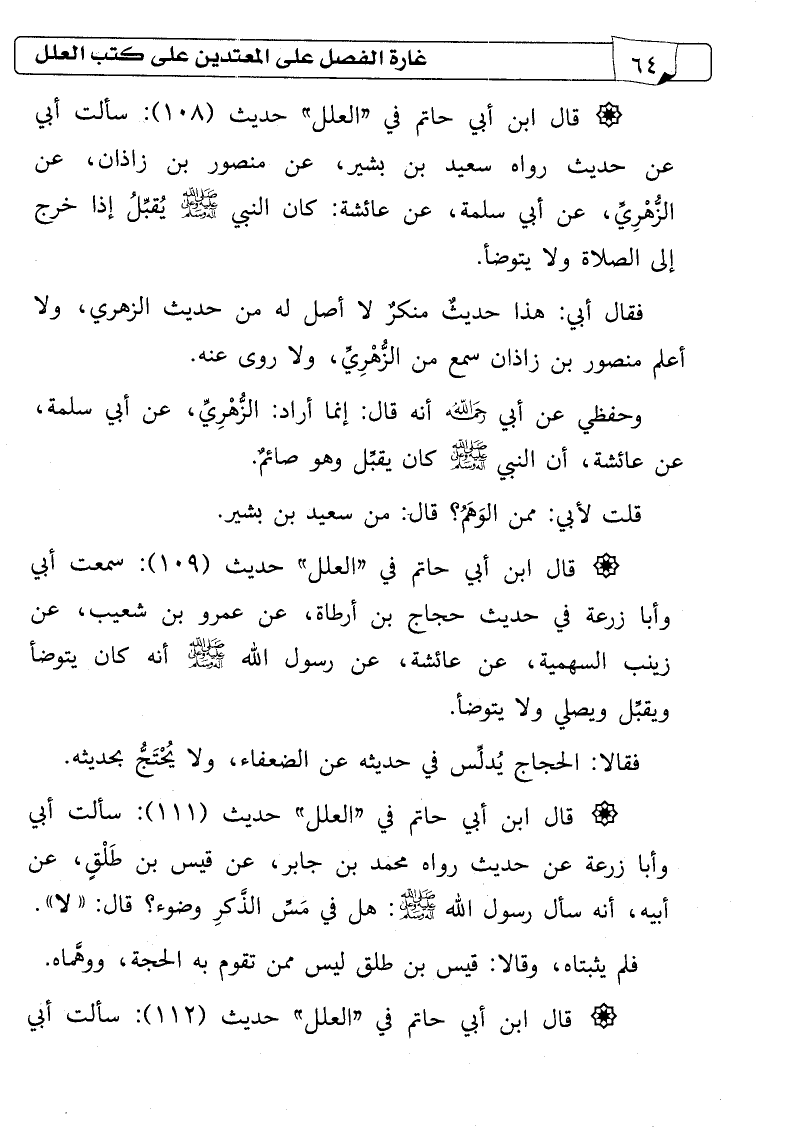 ٦٤
غارة الفصل على المعتدين على كتب العلل
قال ابن أبي حاتم في "العلل" حديث (١٠٨): سألت أبي
عن حديث رواه سعيد بن بشير، عن منصور بن زاذان، عن
الزُّهْرِيِّ، عن أبي سلمة، عن عائشة: كان النبي ﷺ يُقبِّلُ إذا خرج
إلى الصلاة ولا يتوضأ.
فقال أبي: هذا حديثٌ منكرٌ لا أصل له من حديث الزهري، ولا
أعلم منصور بن زاذان سمع من الزُّهْرِيِّ، ولا روى عنه.
وحفظي عن أبي رحمه الله أنه قال: إنما أراد: الزُّهْرِيِّ، عن أبي سلمة،
عن عائشة، أن النبي ﷺ كان يقبِّل وهو صائمٌ.
قلت لأبي: ممن الوَهَمُ؟ قال: من سعيد بن بشير.
قال ابن أبي حاتم في "العلل" حديث (١٠٩): سمعت أبي
وأبا زرعة في حديث حجاج بن أرطاة، عن عمرو بن شعيب، عن
زينب السهمية، عن عائشة، عن رسول الله ﷺ أنه كان يتوضأ
ويقبِّل ويصلي ولا يتوضأ.
فقالا: الحجاج يُدلِّس في حديثه عن الضعفاء، ولا يُحْتَجُّ بحديثه.
قال ابن أبي حاتم في "العلل" حديث (١١١): سألت أبي
وأبا زرعة عن حديث رواه محمد بن جابر، عن قيس بن طَلْقٍ، عن
أبيه، أنه سأل رسول الله ﷺ: هل في مَسِّ الذَّكرِ وضوء؟ قال: «لا».
فلم يثبتاه، وقالا: قيس بن طلق ليس ممن تقوم به الحجة، ووهَّماه.
قال ابن أبي حاتم في "العلل" حديث (١١٢): سألت أبي